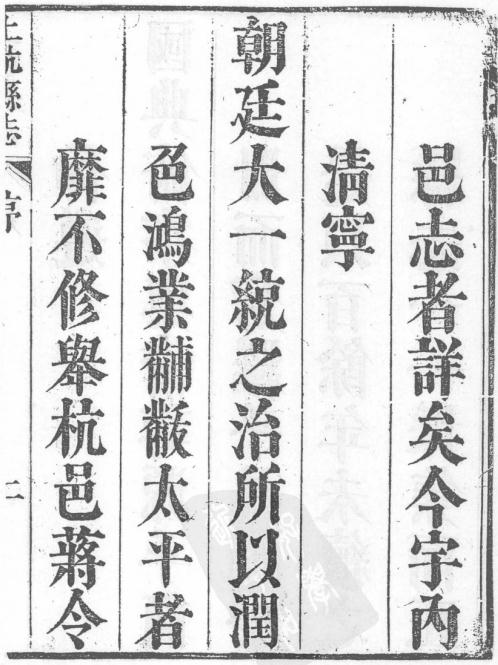 邑志者詳矣今宇內
清寧
朝廷大一統之治所以潤
色鴻業黼黻太平者
靡不修舉杭邑蔣令
上杭縣志
序
二